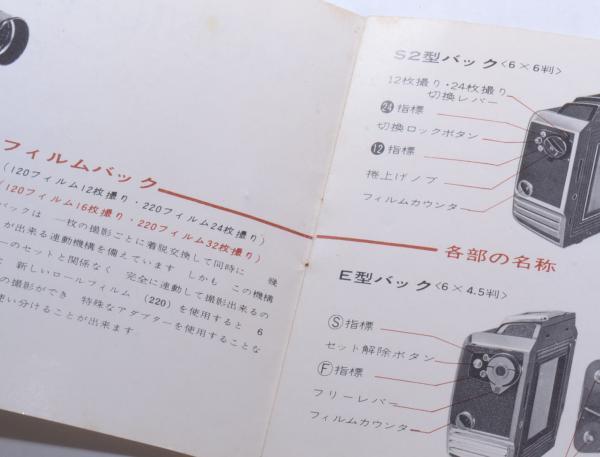 フィルムバック
(120フィルム12枚撮り・220フィルム24枚撮り)
(120フィルム16枚撮り・220フィルム32枚撮り)
バックは 一枚の撮影ごとに着脱交換して同時に 幾
が出来る連動機構を備えています しかも この機構
ーのセットと関係なく 完全に連動して撮影出来るの
新しいロールフィルム (220)を使用すると 6
の撮影ができ 特殊なアダプターを使用することな
使い分けることが出来ます
S2型バック〈6×6判〉
12枚撮り・24枚撮り
切換レバー
㉔指標
切換ロックボタン
⑫指標
捲上げノブ
フィルムカウンター
各部の名称
E型バック〈6×4.5判〉
Ⓢ指標
セット解除ボタン
Ⓕ指標
フリーレバー
フィルムカウンター